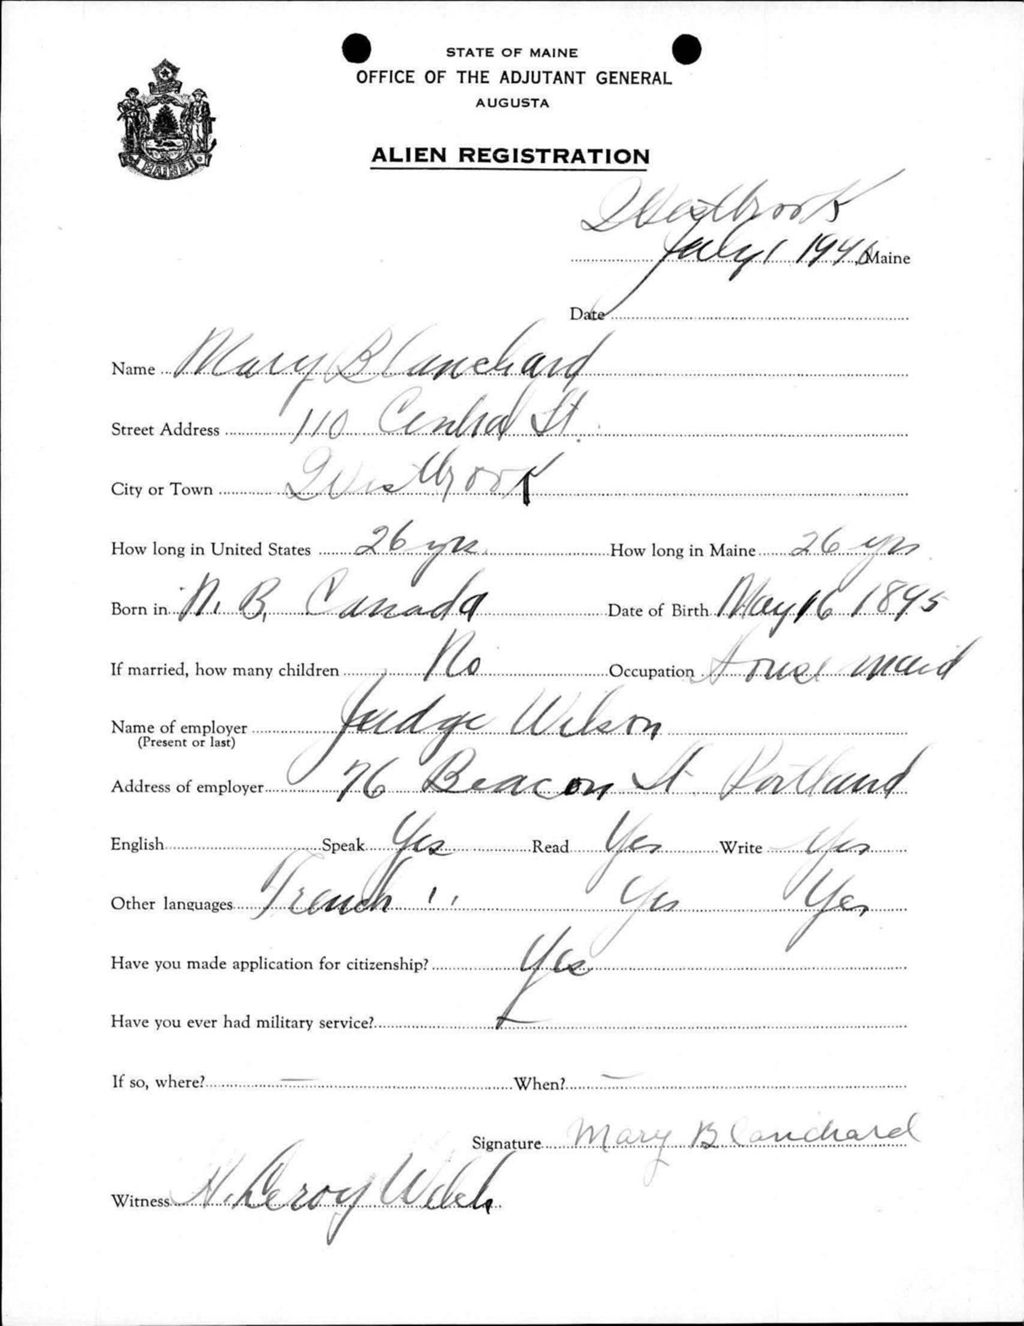 STATE OF MAINE
OFFICE OF THE ADJUTANT GENERAL
AUGUSTA
MAINE
ALIEN REGISTRATION
Westbrook
July 1 1940, Maine
Date
Name Mary Blanchard
Street Address 110 Central St.
City or Town Westbrook
How long in United States 26 yrs. How long in Maine 26 yrs
Born in N. B. Canada Date of Birth May 16 1895
If married, how many children No Occupation House maid
Name of employer Judge Wilson
(Present or last)
Address of employer 76 Beacon St. Portland
English Speak Yes Read Yes Write Yes
Other languages French " Yes Yes
Have you made application for citizenship? Yes
Have you ever had military service? -
If so, where? — When? —
Signature Mary Blanchard
Witness H. Leroy